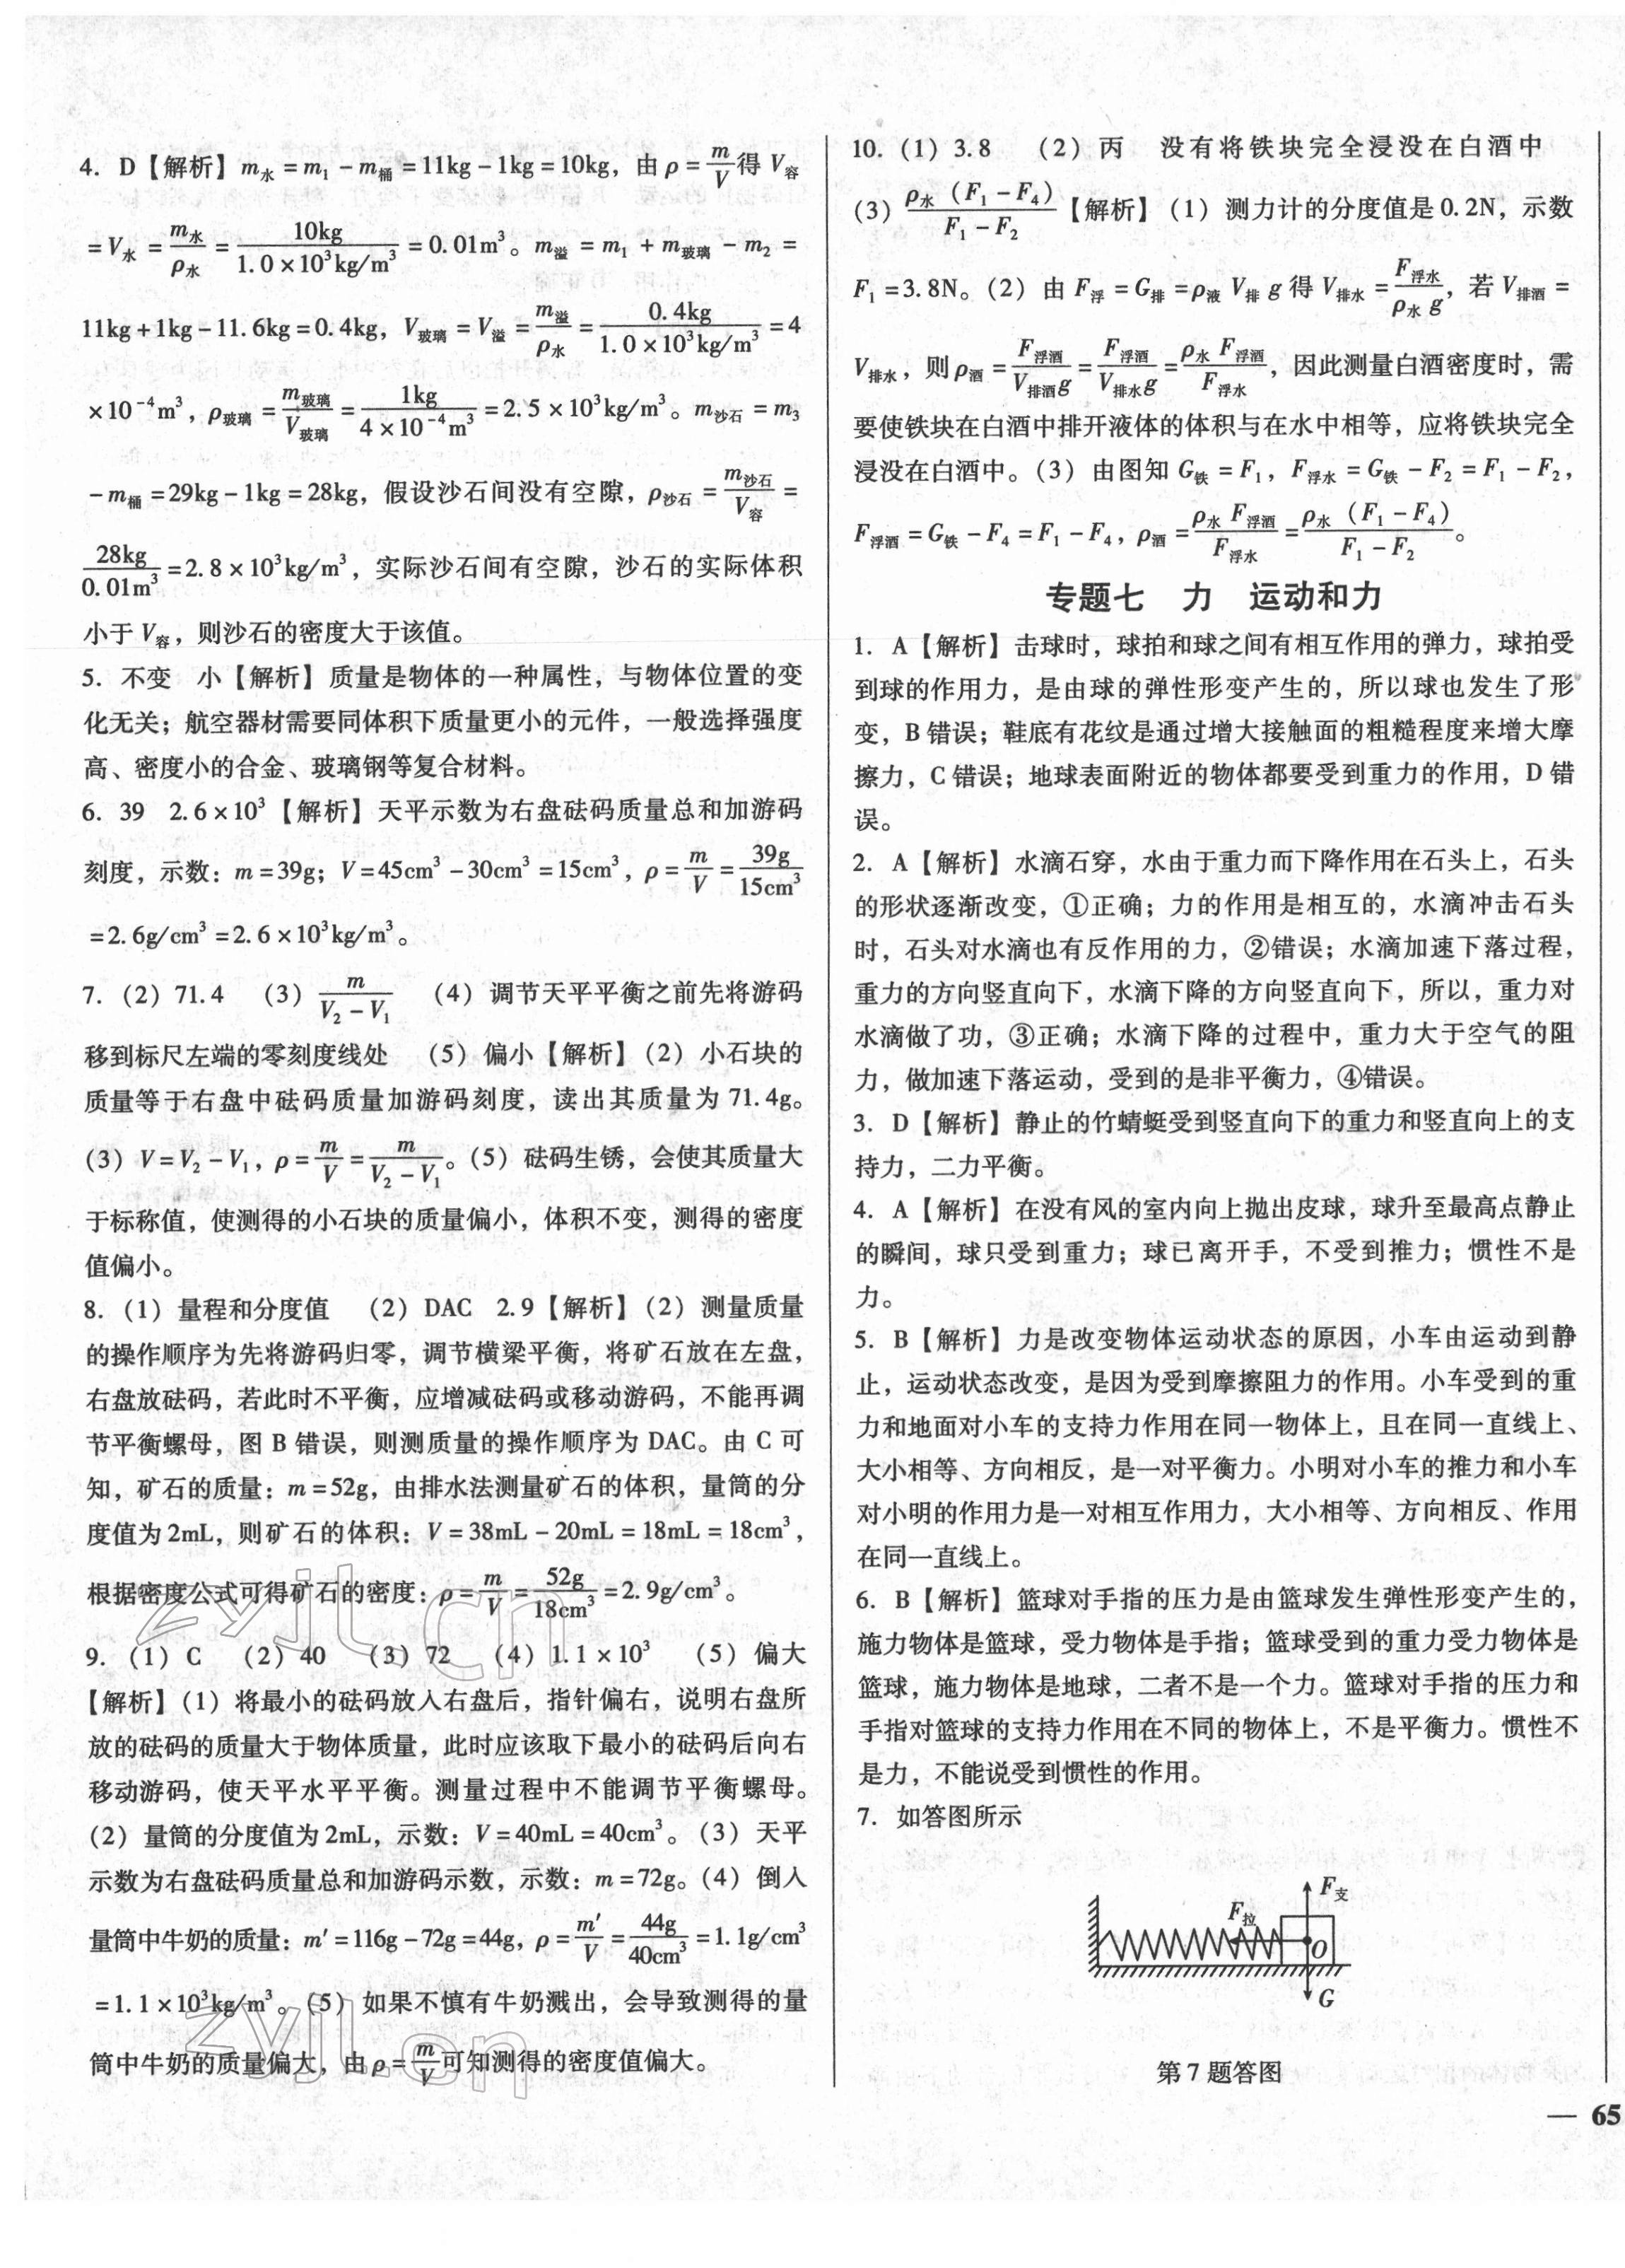 4. D【解析】m水=m₁-m桶=11kg-1kg=10kg，由ρ=m/V得V容
=V水=m水/ρ水=10kg/(1.0×10³kg/m³)=0.01m³。m溢=m₁+m玻璃-m₂=
11kg+1kg-11.6kg=0.4kg，V玻璃=V溢=m溢/ρ水=0.4kg/(1.0×10³kg/m³)=4
×10⁻⁴m³，ρ玻璃=m玻璃/V玻璃=1kg/(4×10⁻⁴m³)=2.5×10³kg/m³。m沙石=m₃
-m桶=29kg-1kg=28kg，假设沙石间没有空隙，ρ沙石=m沙石/V容=
28kg/0.01m³=2.8×10³kg/m³，实际沙石间有空隙，沙石的实际体积
小于V容，则沙石的密度大于该值。
5. 不变 小【解析】质量是物体的一种属性，与物体位置的变
化无关；航空器材需要同体积下质量更小的元件，一般选择强度
高、密度小的合金、玻璃钢等复合材料。
6. 39 2.6×10³【解析】天平示数为右盘砝码质量总和加游码
刻度，示数：m=39g；V=45cm³-30cm³=15cm³，ρ=m/V=39g/15cm³
=2.6g/cm³=2.6×10³kg/m³。
7.（2）71.4 （3）m/(V₂-V₁) （4）调节天平平衡之前先将游码
移到标尺左端的零刻度线处 （5）偏小【解析】（2）小石块的
质量等于右盘中砝码质量加游码刻度，读出其质量为71.4g。
（3）V=V₂-V₁，ρ=m/V=m/(V₂-V₁)。（5）砝码生锈，会使其质量大
于标称值，使测得的小石块的质量偏小，体积不变，测得的密度
值偏小。
8.（1）量程和分度值 （2）DAC 2.9【解析】（2）测量质量
的操作顺序为先将游码归零，调节横梁平衡，将矿石放在左盘，
右盘放砝码，若此时不平衡，应增减砝码或移动游码，不能再调
节平衡螺母，图B错误，则测质量的操作顺序为DAC。由C可
知，矿石的质量：m=52g，由排水法测量矿石的体积，量筒的分
度值为2mL，则矿石的体积：V=38mL-20mL=18mL=18cm³，
根据密度公式可得矿石的密度：ρ=m/V=52g/18cm³=2.9g/cm³。
9.（1）C （2）40 （3）72 （4）1.1×10³ （5）偏大
【解析】（1）将最小的砝码放入右盘后，指针偏右，说明右盘所
放的砝码的质量大于物体质量，此时应该取下最小的砝码后向右
移动游码，使天平水平平衡。测量过程中不能调节平衡螺母。
（2）量筒的分度值为2mL，示数：V=40mL=40cm³。（3）天平
示数为右盘砝码质量总和加游码示数，示数：m=72g。（4）倒入
量筒中牛奶的质量：m′=116g-72g=44g，ρ=m′/V=44g/40cm³=1.1g/cm³
=1.1×10³kg/m³。（5）如果不慎有牛奶溅出，会导致测得的量
筒中牛奶的质量偏大，由ρ=m/V可知测得的密度值偏大。
10.（1）3.8 （2）丙 没有将铁块完全浸没在白酒中
（3）ρ水（F₁-F₄）/(F₁-F₂)【解析】（1）测力计的分度值是0.2N，示数
F₁=3.8N。（2）由F浮=G排=ρ液V排g得V排水=F浮水/(ρ水g)，若V排酒=
V排水，则ρ酒=F浮酒/(V排酒g)=F浮酒/(V排水g)=ρ水F浮酒/F浮水，因此测量白酒密度时，需
要使铁块在白酒中排开液体的体积与在水中相等，应将铁块完全
浸没在白酒中。（3）由图知G铁=F₁，F浮水=G铁-F₂=F₁-F₂，
F浮酒=G铁-F₄=F₁-F₄，ρ酒=ρ水F浮酒/F浮水=ρ水（F₁-F₄）/(F₁-F₂)。
专题七 力 运动和力
1. A【解析】击球时，球拍和球之间有相互作用的弹力，球拍受
到球的作用力，是由球的弹性形变产生的，所以球也发生了形
变，B错误；鞋底有花纹是通过增大接触面的粗糙程度来增大摩
擦力，C错误；地球表面附近的物体都要受到重力的作用，D错
误。
2. A【解析】水滴石穿，水由于重力而下降作用在石头上，石头
的形状逐渐改变，①正确；力的作用是相互的，水滴冲击石头
时，石头对水滴也有反作用的力，②错误；水滴加速下落过程，
重力的方向竖直向下，水滴下降的方向竖直向下，所以，重力对
水滴做了功，③正确；水滴下降的过程中，重力大于空气的阻
力，做加速下落运动，受到的是非平衡力，④错误。
3. D【解析】静止的竹蜻蜓受到竖直向下的重力和竖直向上的支
持力，二力平衡。
4. A【解析】在没有风的室内向上抛出皮球，球升至最高点静止
的瞬间，球只受到重力；球已离开手，不受到推力；惯性不是
力。
5. B【解析】力是改变物体运动状态的原因，小车由运动到静
止，运动状态改变，是因为受到摩擦阻力的作用。小车受到的重
力和地面对小车的支持力作用在同一物体上，且在同一直线上、
大小相等、方向相反，是一对平衡力。小明对小车的推力和小车
对小明的作用力是一对相互作用力，大小相等、方向相反、作用
在同一直线上。
6. B【解析】篮球对手指的压力是由篮球发生弹性形变产生的，
施力物体是篮球，受力物体是手指；篮球受到的重力受力物体是
篮球，施力物体是地球，二者不是一个力。篮球对手指的压力和
手指对篮球的支持力作用在不同的物体上，不是平衡力。惯性不
是力，不能说受到惯性的作用。
7. 如答图所示
F支
F拉
O
G
第7题答图
— 65
zyjl.cn
zyjl.cn